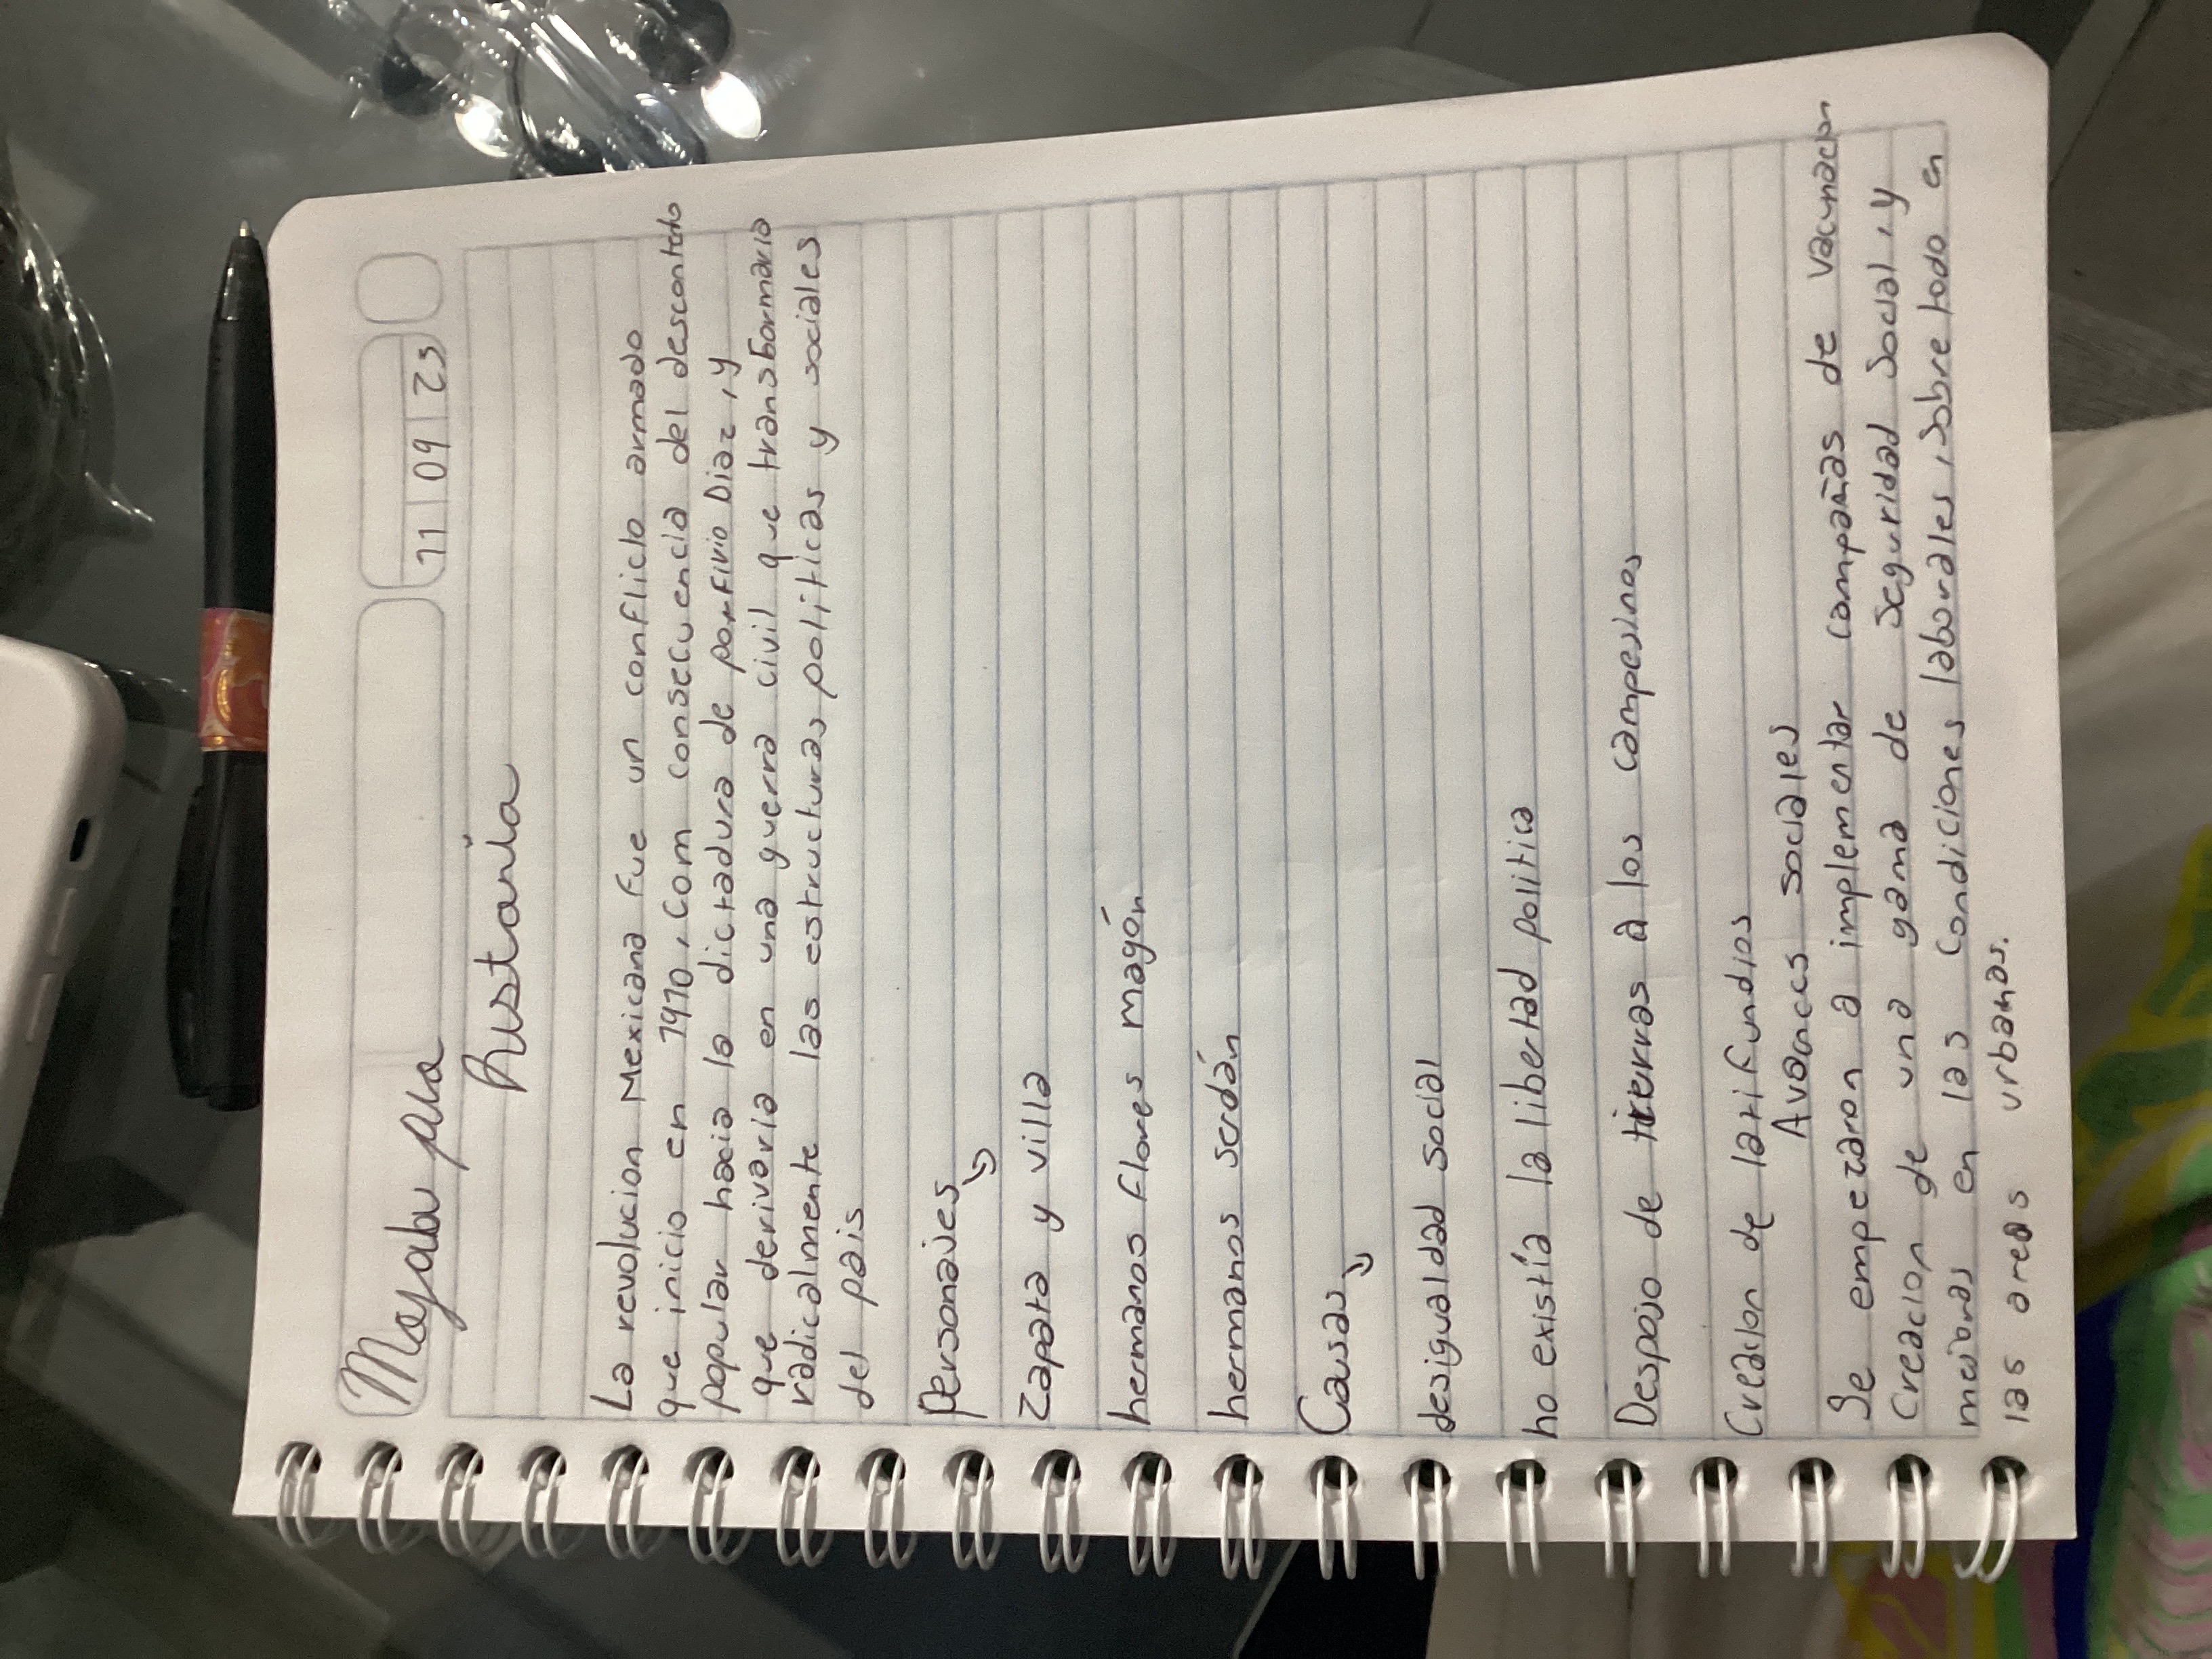 11 09 23
La revolucion Mexicana fue un conflicto armado
que inicio en 1910, com consecuencia del descontento
popular hacia la dictadura de porfirio Diaz, y
que derivaria en una guerra civil que transformaria
radicalmente las estructuras politicas y sociales
del pais
Personajes
Zapata y villa
hermanos flores magón
hermanos serdán
Causas
desigualdad social
no existía la libertad politica
Despojo de tierras a los campesinos
Creacion de latifundios
Avances sociales
Se empezaron a implementar campañas de vacunacion
Creacion de una gama de seguridad social, y
mejoras en las condiciones laborales, sobre todo en
las areas urbanas.